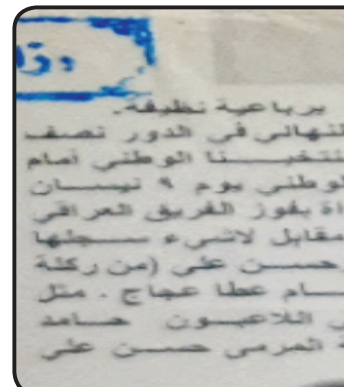 برباعية نظيفه.
النهائي في الدور نصف
منتخبنا الوطني أمام
الوطني يوم ٩ نيسان
بفوز الفريق العراقي
مقابل لاشيء سجلها
حسن علي (من ركلة
عطا عجاج . مثل
اللاعبون حامد
المرمى حسن علي